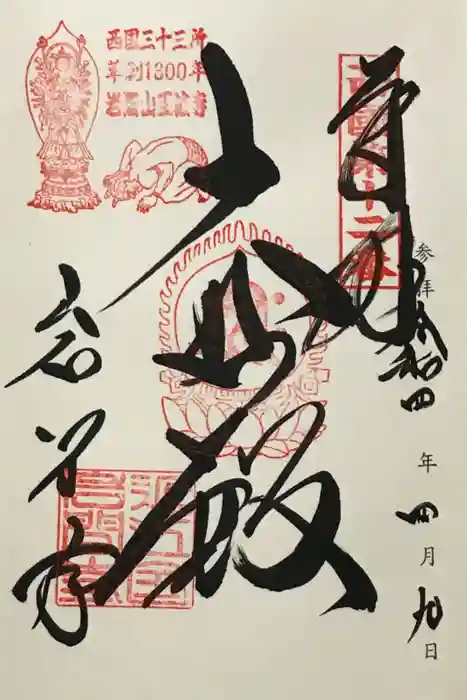 参拝 令和四年四月九日
奉拝
西國第十二番
大悲殿
西国三十三所
草創1300年
岩間山正法寺
岩間寺